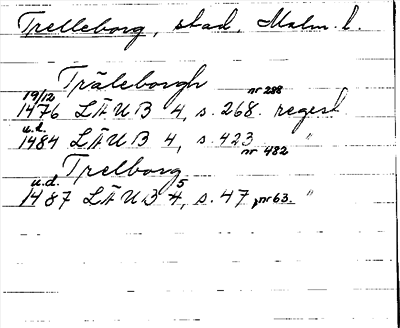 Trelleborg, stad, Malm. l.
Träleborgh
19/12 nr 288
1476 LÄUB 4, s. 268. regest
u.d.
1484 LÄUB 4, s. 423 "
nr 482
Trelborg
u.d. 5
1487 LÄUB 4, s. 47, nr 63. "